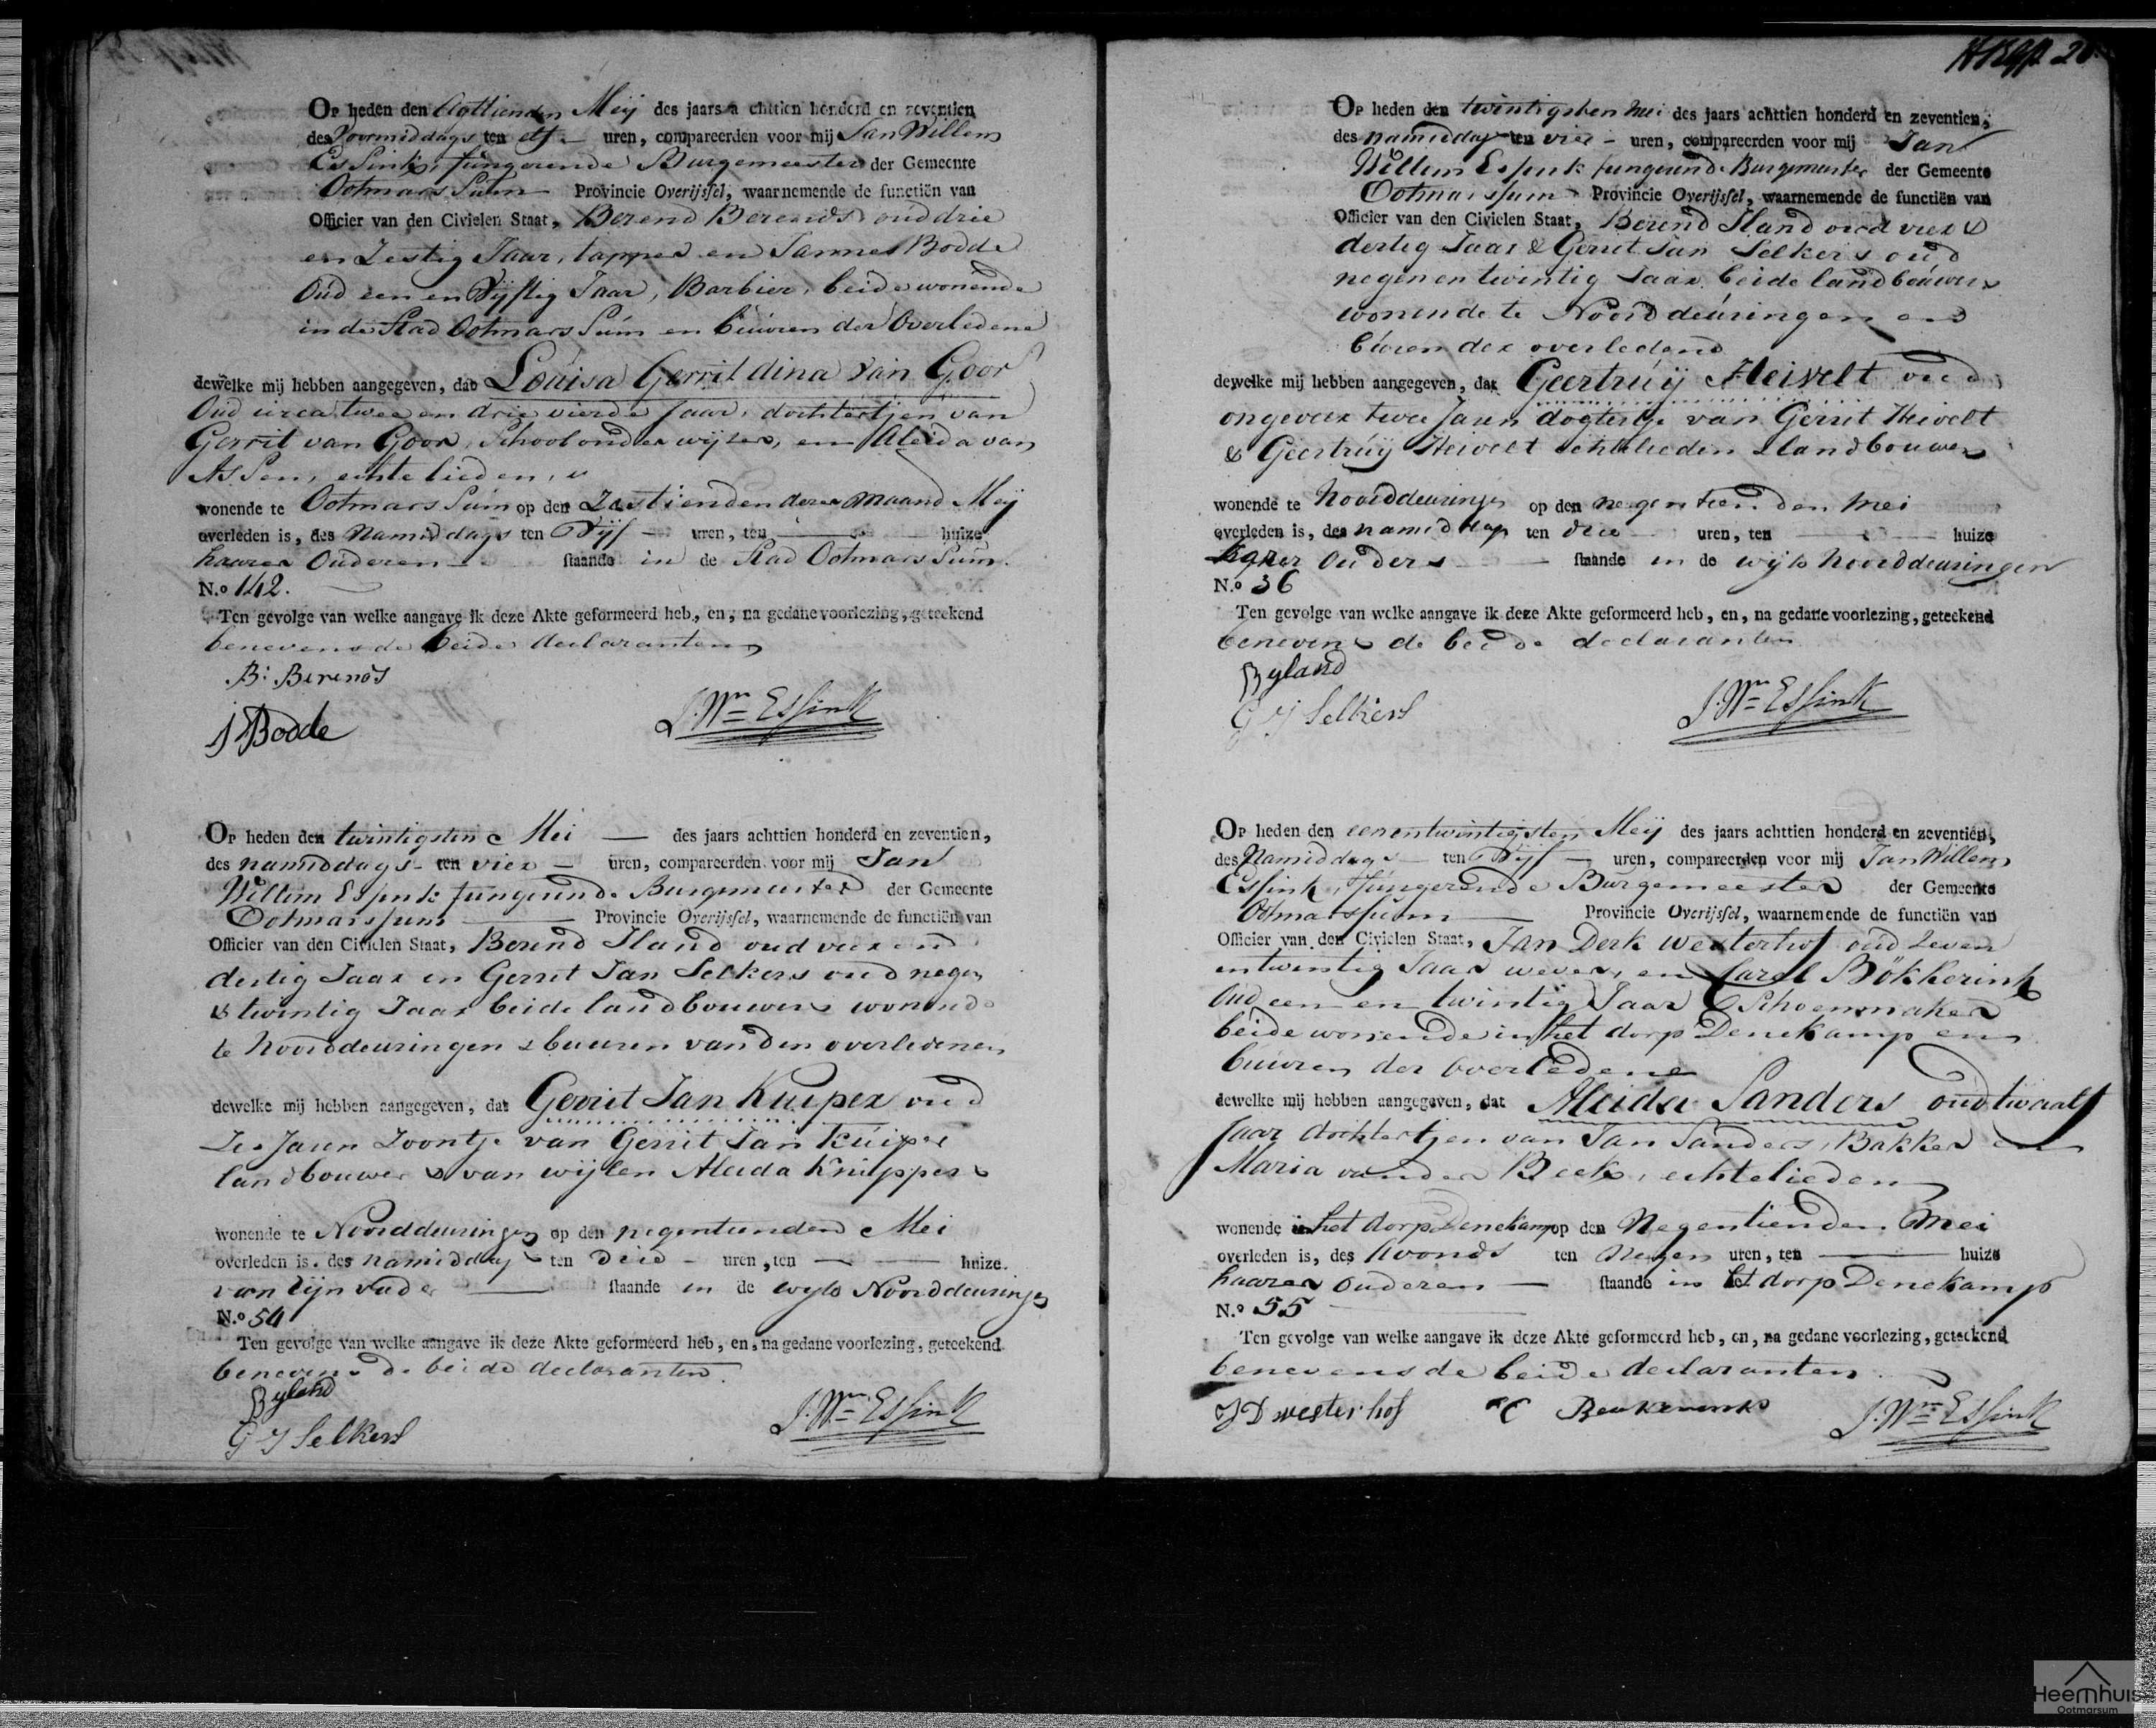 Op heden den Agttienden Meij des jaars achttien honderd en zeventien
des Voormiddags ten elf uren, compareerden voor mij Jan Willem
Essink, fungerende Burgemeester der Gemeente
Ootmarssum Provincie Overijssel, waarnemende de functiën van
Officier van den Civielen Staat, Berend Berends oud drie
en Zestig Jaar, tapper en Jannes Bodde
Oud een en Vijftig Jaar, Barbier, beide wonende
in de Stad Ootmarssum en buuren der Overledene
dewelke mij hebben aangegeven, dat Louisa Gerritdina van Goor
Oud circa twee en drie vierde Jaar, dochtertjen van
Gerrit van Goor, Schoolonderwijzer, en Aleida van
Assen, echtelieden,
wonende te Ootmarssum op den Zestienden dezer maand Meij
overleden is, des Namiddags ten Vijf uren, ten huize
haarer Ouderen staande in de Stad Ootmarssum.
N.o 142.
Ten gevolge van welke aangave ik deze Akte geformeerd heb, en, na gedane voorlezing, geteekend
benevens de beide declaranten
B: Berends
J Bodde
J. Wm Essink
Op heden den twintigsten Mei des jaars achttien honderd en zeventien,
des namiddags ten vier uren, compareerden voor mij Jan
Willem Essink fungeerende Burgemeester der Gemeente
Ootmarssum Provincie Overijssel, waarnemende de functiën van
Officier van den Civielen Staat, Berend Iland oud vier en
dertig Jaar en Gerrit Jan Selkers oud negen
& twintig Jaar beide landbouwers wonende
te Noorddeuringen & buuren van den overledenen
dewelke mij hebben aangegeven, dat Gerrit Jan Kuiper oud
Zes Jaren Zoontje van Gerrit Jan Kuiper
landbouwer & van wijlen Aleida Knippers
wonende te Noorddeuringen op den negentienden Mei
overleden is, des namiddags ten drie uren, ten huize
van zijn vader staande in de wijk Noorddeuringen
N.o 54
Ten gevolge van welke aangave ik deze Akte geformeerd heb, en, na gedane voorlezing, geteekend
benevens de beide declaranten.
Byland
G J Selkers
J. Wm Essink
Op heden den twintigsten Mei des jaars achttien honderd en zeventien,
des namiddags ten vier uren, compareerden voor mij Jan
Willem Essink fungeerende Burgemeester der Gemeente
Ootmarssum Provincie Overijssel, waarnemende de functiën van
Officier van den Civielen Staat, Berend Iland oud vier &
dertig Jaar & Gerrit Jan Selkers oud
negen en twintig Jaar beide landbouwers
wonende te Noorddeuringen en
buren der overledene
dewelke mij hebben aangegeven, dat Geertruij Heivelt oud
ongeveer twee Jaren dogtertje van Gerrit Heivelt
& Geertruij Heivelt echtelieden & landbouwers
wonende te Noorddeuringen op den negentienden Mei
overleden is, des namiddags ten drie uren, ten huize
harer Ouders staande in de wijk Noorddeuringen
N.o 36
Ten gevolge van welke aangave ik deze Akte geformeerd heb, en, na gedane voorlezing, geteekend
benevens de beide declaranten
Byland
G J Selkers
J. Wm Essink
Op heden den eenentwintigsten Meij des jaars achttien honderd en zeventien,
des Namiddags ten Vijf uren, compareerden voor mij Jan Willem
Essink, fungerende Burgemeester der Gemeente
Ootmarssum Provincie Overijssel, waarnemende de functiën van
Officier van den Civielen Staat, Jan Derk Westerhof oud Zeven
entwintig Jaar wever, en Carel Bökkerink
Oud een en twintig Jaar Schoenmaker
beide wonende in het dorp Denekamp en
buuren der overledene
dewelke mij hebben aangegeven, dat Aleida Sanders oud twaalf
Jaar dochtertjen van Jan Sanders, Bakker en
Maria vander Beek, echtelieden
wonende in het dorp Denekamp op den Negentienden Mei
overleden is, des Avonds ten Negen uren, ten huize
haarer Ouderen staande in het dorp Denekamp
N.o 55
Ten gevolge van welke aangave ik deze Akte geformeerd heb, en, na gedane voorlezing, geteekend
benevens de beide declaranten.
J D westerhof C Beukerinck J. Wm Essink
Heemhuis
Ootmarsum